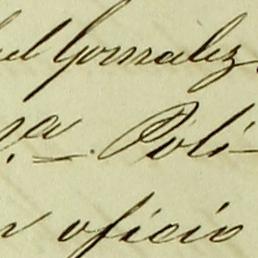 el Gonzalez.
ra. Poli-
oficio